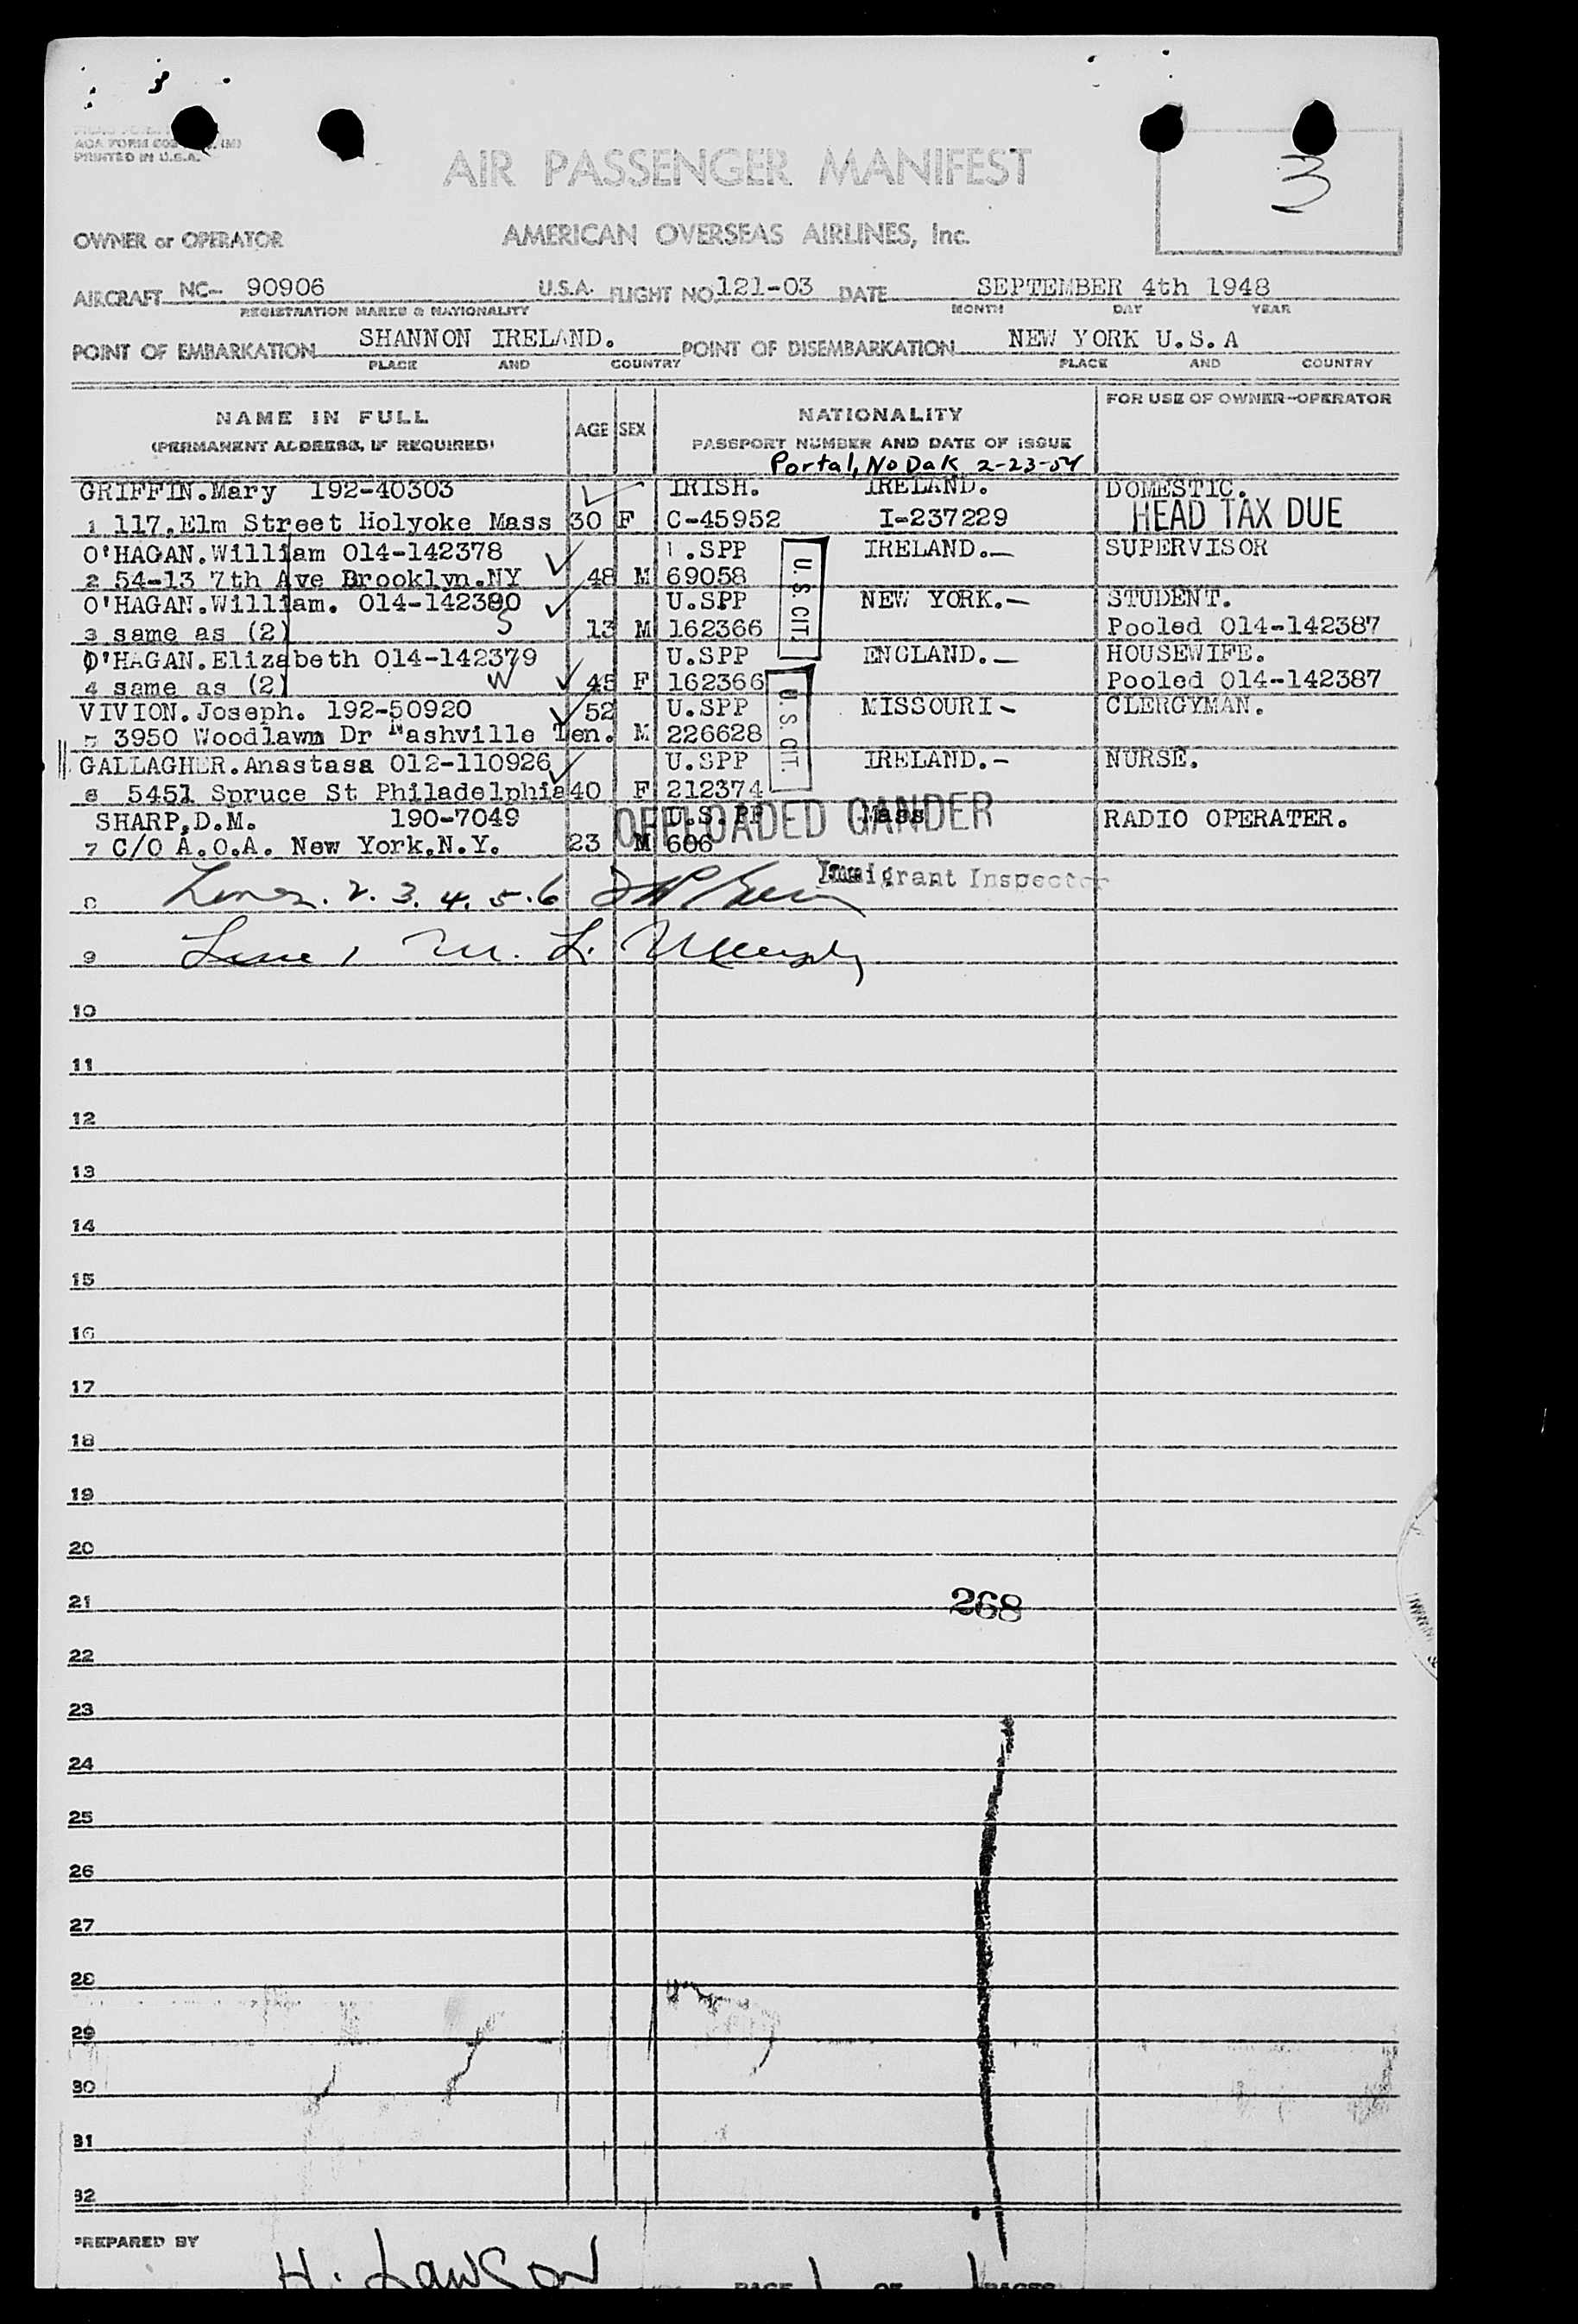 PRINTED IN U.S.A.
3
AIR PASSENGER MANIFEST
OWNER or OPERATOR AMERICAN OVERSEAS AIRLINES, Inc.
AIRCRAFT NC- 90906 U.S.A. FLIGHT NO. 121-03 DATE SEPTEMBER 4th 1948
REGISTRATION MARKS & NATIONALITY MONTH DAY YEAR
POINT OF EMBARKATION SHANNON IRELAND. POINT OF DISEMBARKATION NEW YORK U.S.A
PLACE AND COUNTRY PLACE AND COUNTRY
NAME IN FULL AGE SEX NATIONALITY FOR USE OF OWNER-OPERATOR
(PERMANENT ADDRESS, IF REQUIRED) PASSPORT NUMBER AND DATE OF ISSUE
Portal, NoDak 2-23-54
GRIFFIN.Mary 192-40303 IRISH. IRELAND. DOMESTIC.
1 117,Elm Street Holyoke Mass 30 F C-45952 I-237229 HEAD TAX DUE
O'HAGAN.William 014-142378 U.SPP IRELAND.— SUPERVISOR
2 54-13 7th Ave Brooklyn.NY 48 M 69058 U.S. CIT.
O'HAGAN.William. 014-142380 U.SPP NEW YORK.— STUDENT.
3 same as (2) S 13 M 162366 Pooled 014-142387
O'HAGAN.Elizabeth 014-142379 U.SPP ENGLAND.— HOUSEWIFE.
4 same as (2) W 45 F 162366 U.S. CIT. Pooled 014-142387
VIVION.Joseph. 192-50920 52 U.SPP MISSOURI- CLERGYMAN.
5 3950 Woodlawn Dr Nashville Ten. M 226628
GALLAGHER.Anastasa 012-110926 U.SPP IRELAND.- NURSE.
6 5451 Spruce St Philadelphia 40 F 212374
OFFLOADED GANDER
SHARP,D.M. 190-7049 U.S.PP Mass RADIO OPERATER.
7 C/O A.O.A. New York.N.Y. 23 M 606
Immigrant Inspector
8 Lines. 2. 3. 4. 5. 6
9 Line 1 M. L. Murphy
10
11
12
13
14
15
16
17
18
19
20
21 268
22
23
24
25
26
27
28
29
30
31
32
PREPARED BY H. Lawson PAGE 1 OF 1 PAGES